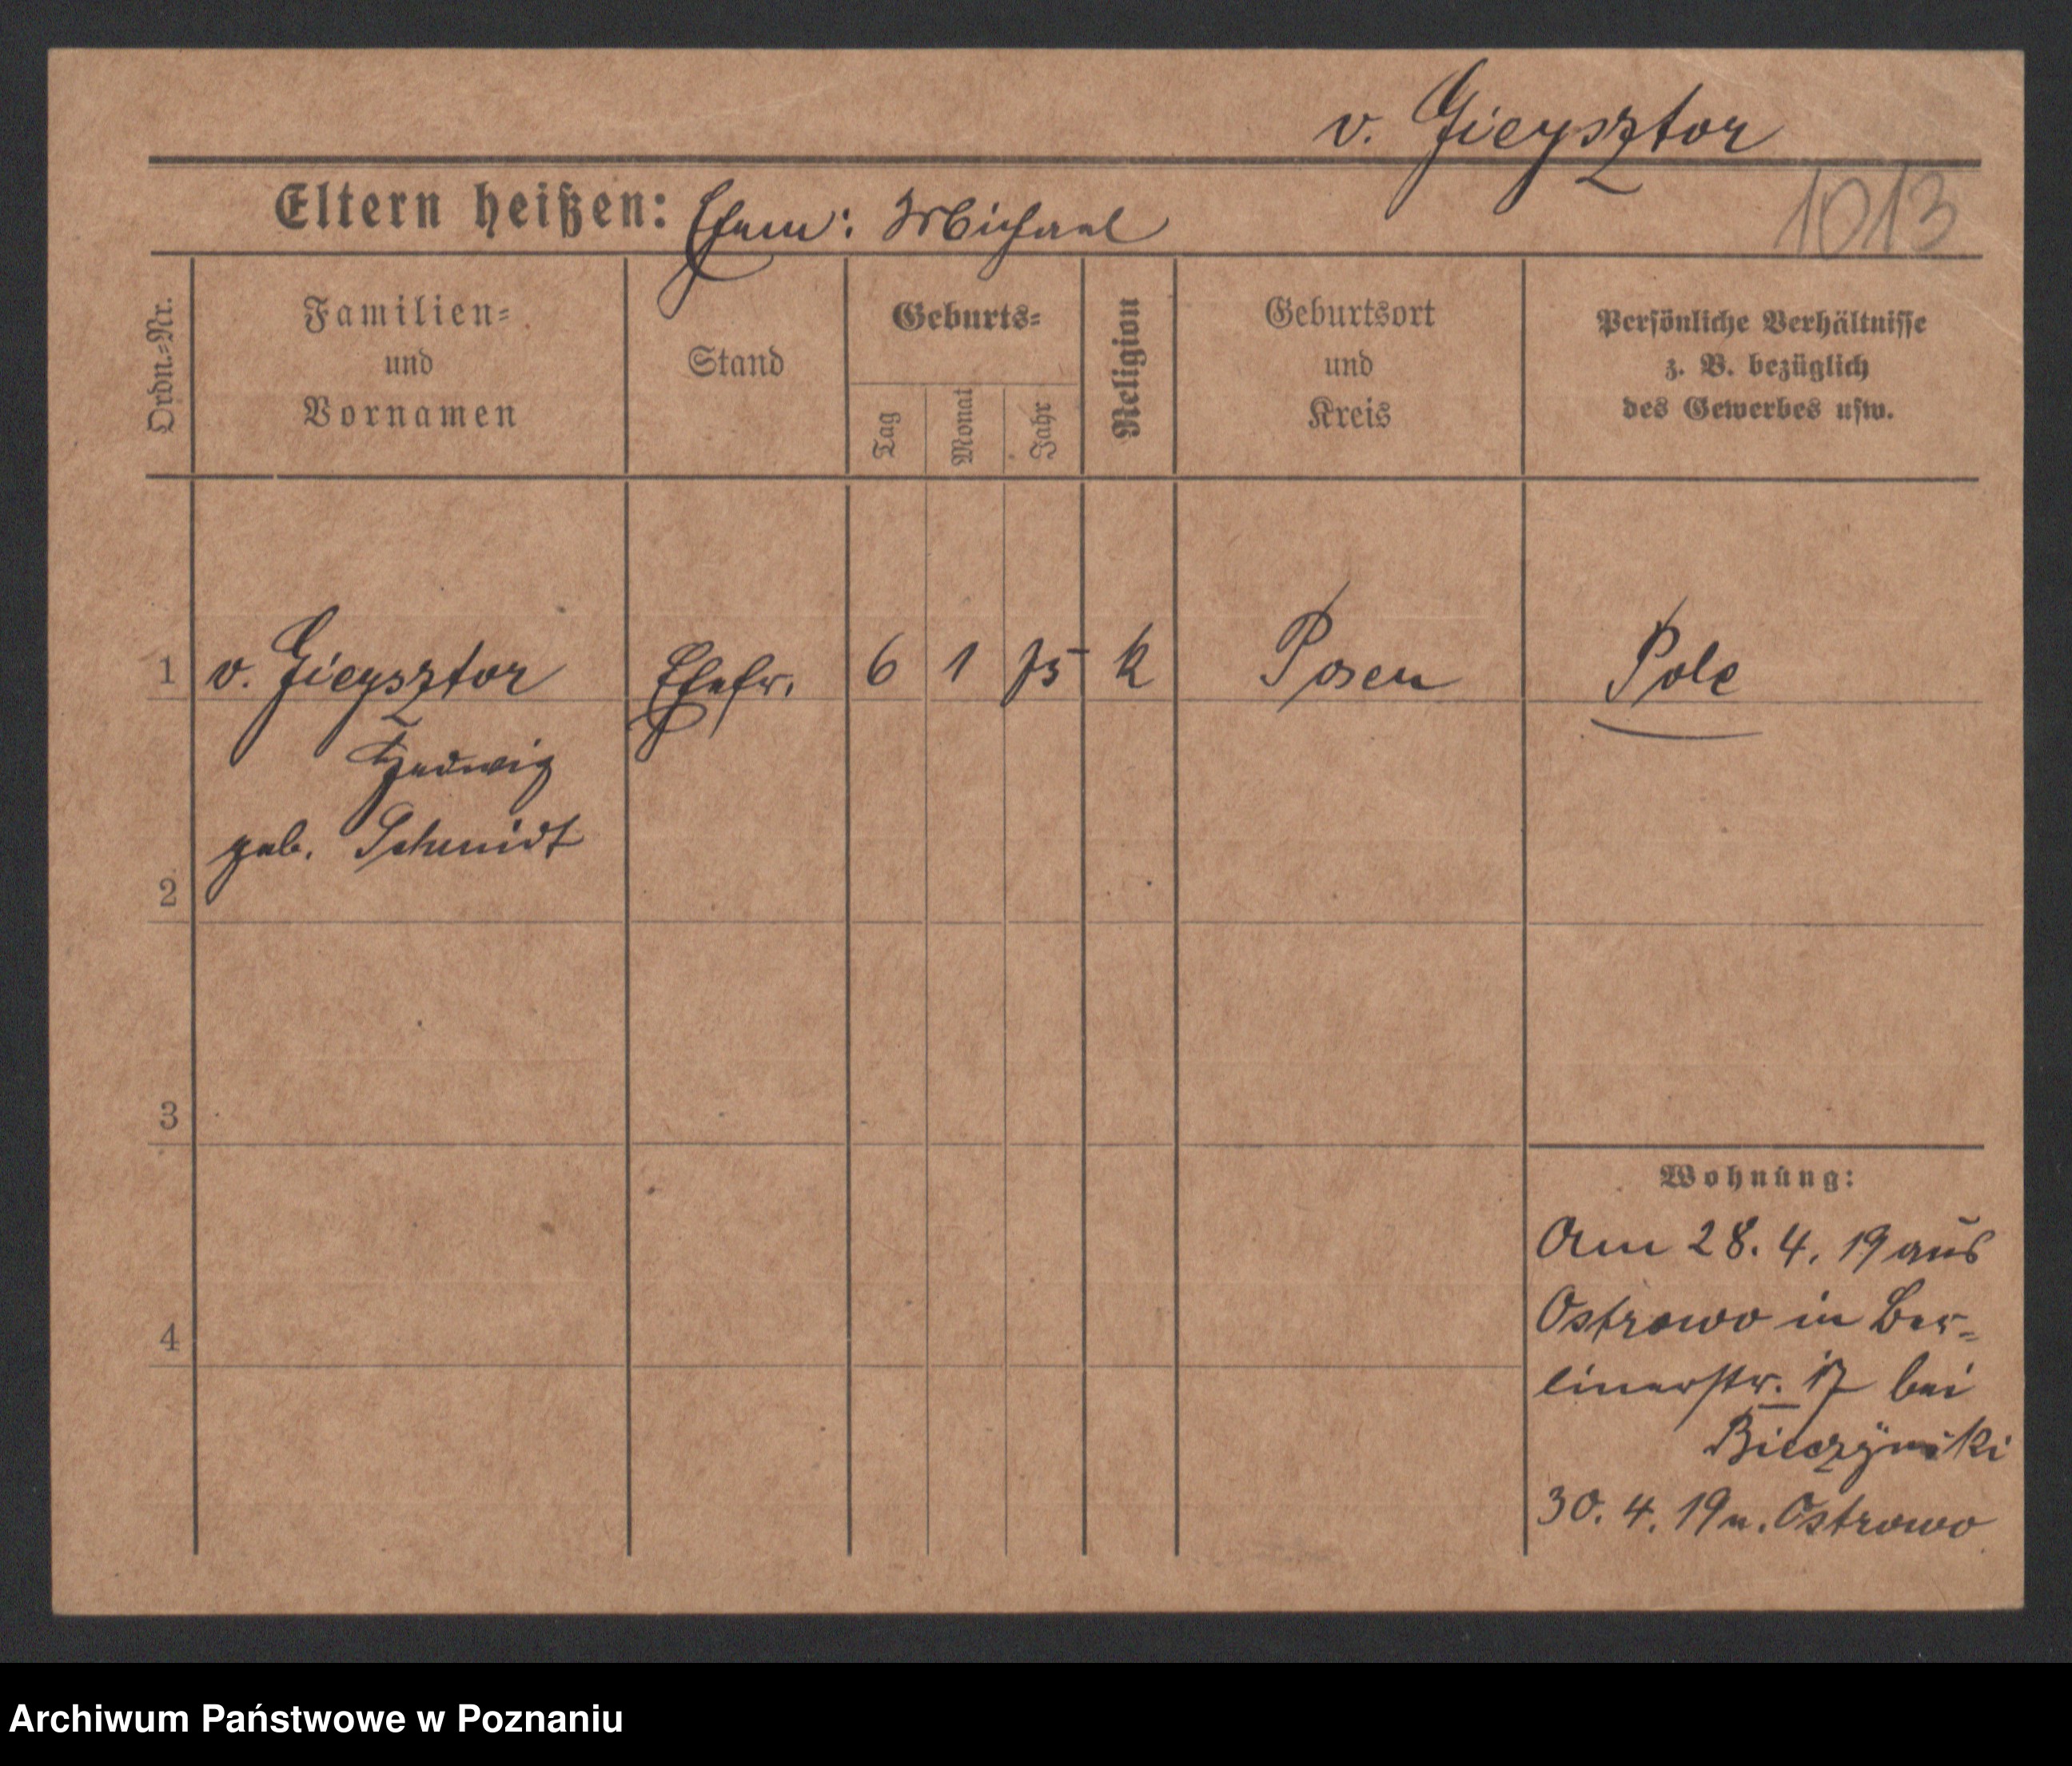 v. Gieysztor
1013
Eltern heißen: Ehem: Michael
Ordn.=Nr.
Familien=
und
Vornamen
Stand
Geburts=
Tag
Monat
Jahr
Religion
Geburtsort
und
Kreis
Persönliche Verhältnisse
z. B. bezüglich
des Gewerbes usw.
1 v. Gieysztor Ehefr. 6 1 75 k Posen Pole
Hedwig
geb. Schmidt
2
3
4
Wohnung:
Am 28. 4. 19 aus
Ostrowo in Ber=
linerstr. 17 bei
Bieczynski
30. 4. 19 n. Ostrowo
Archiwum Państwowe w Poznaniu